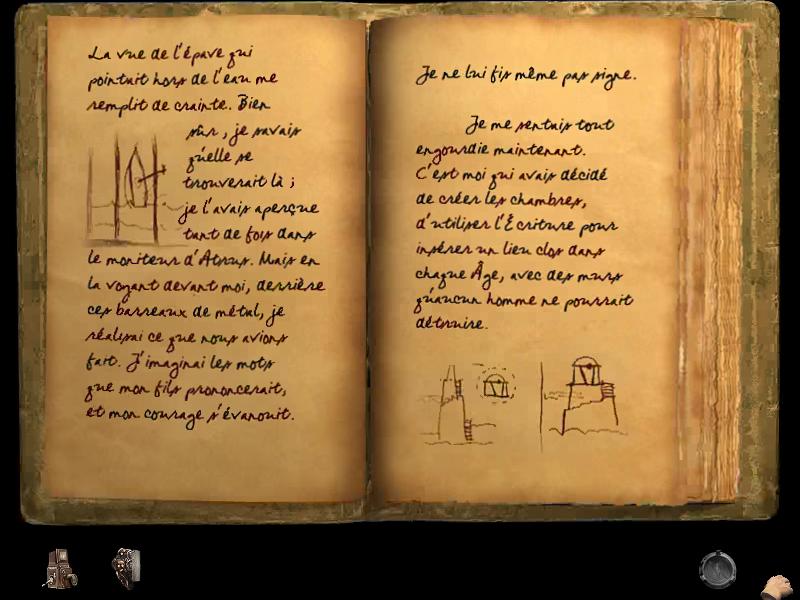 La vue de l'épave qui
pointait hors de l'eau me
remplit de crainte. Bien
sûr, je savais
qu'elle se
trouverait là ;
je l'avais aperçue
tant de fois dans
le moniteur d'Atrus. Mais en
la voyant devant moi, derrière
ces barreaux de métal, je
réalisai ce que nous avions
fait. J'imaginai les mots
que mon fils prononcerait,
et mon courage s'évanouit.
Je ne lui fis même pas signe.
Je me sentais tout
engourdie maintenant.
C'est moi qui avais décidé
de créer les chambres,
d'utiliser l'Écriture pour
insérer un lieu clos dans
chaque Âge, avec des murs
qu'aucun homme ne pourrait
détruire.